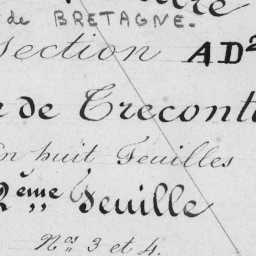 de BRETAGNE.
Section AD2
e de Trecont
En huit Feuilles
2ème Feuille
Nos 3 et 4.